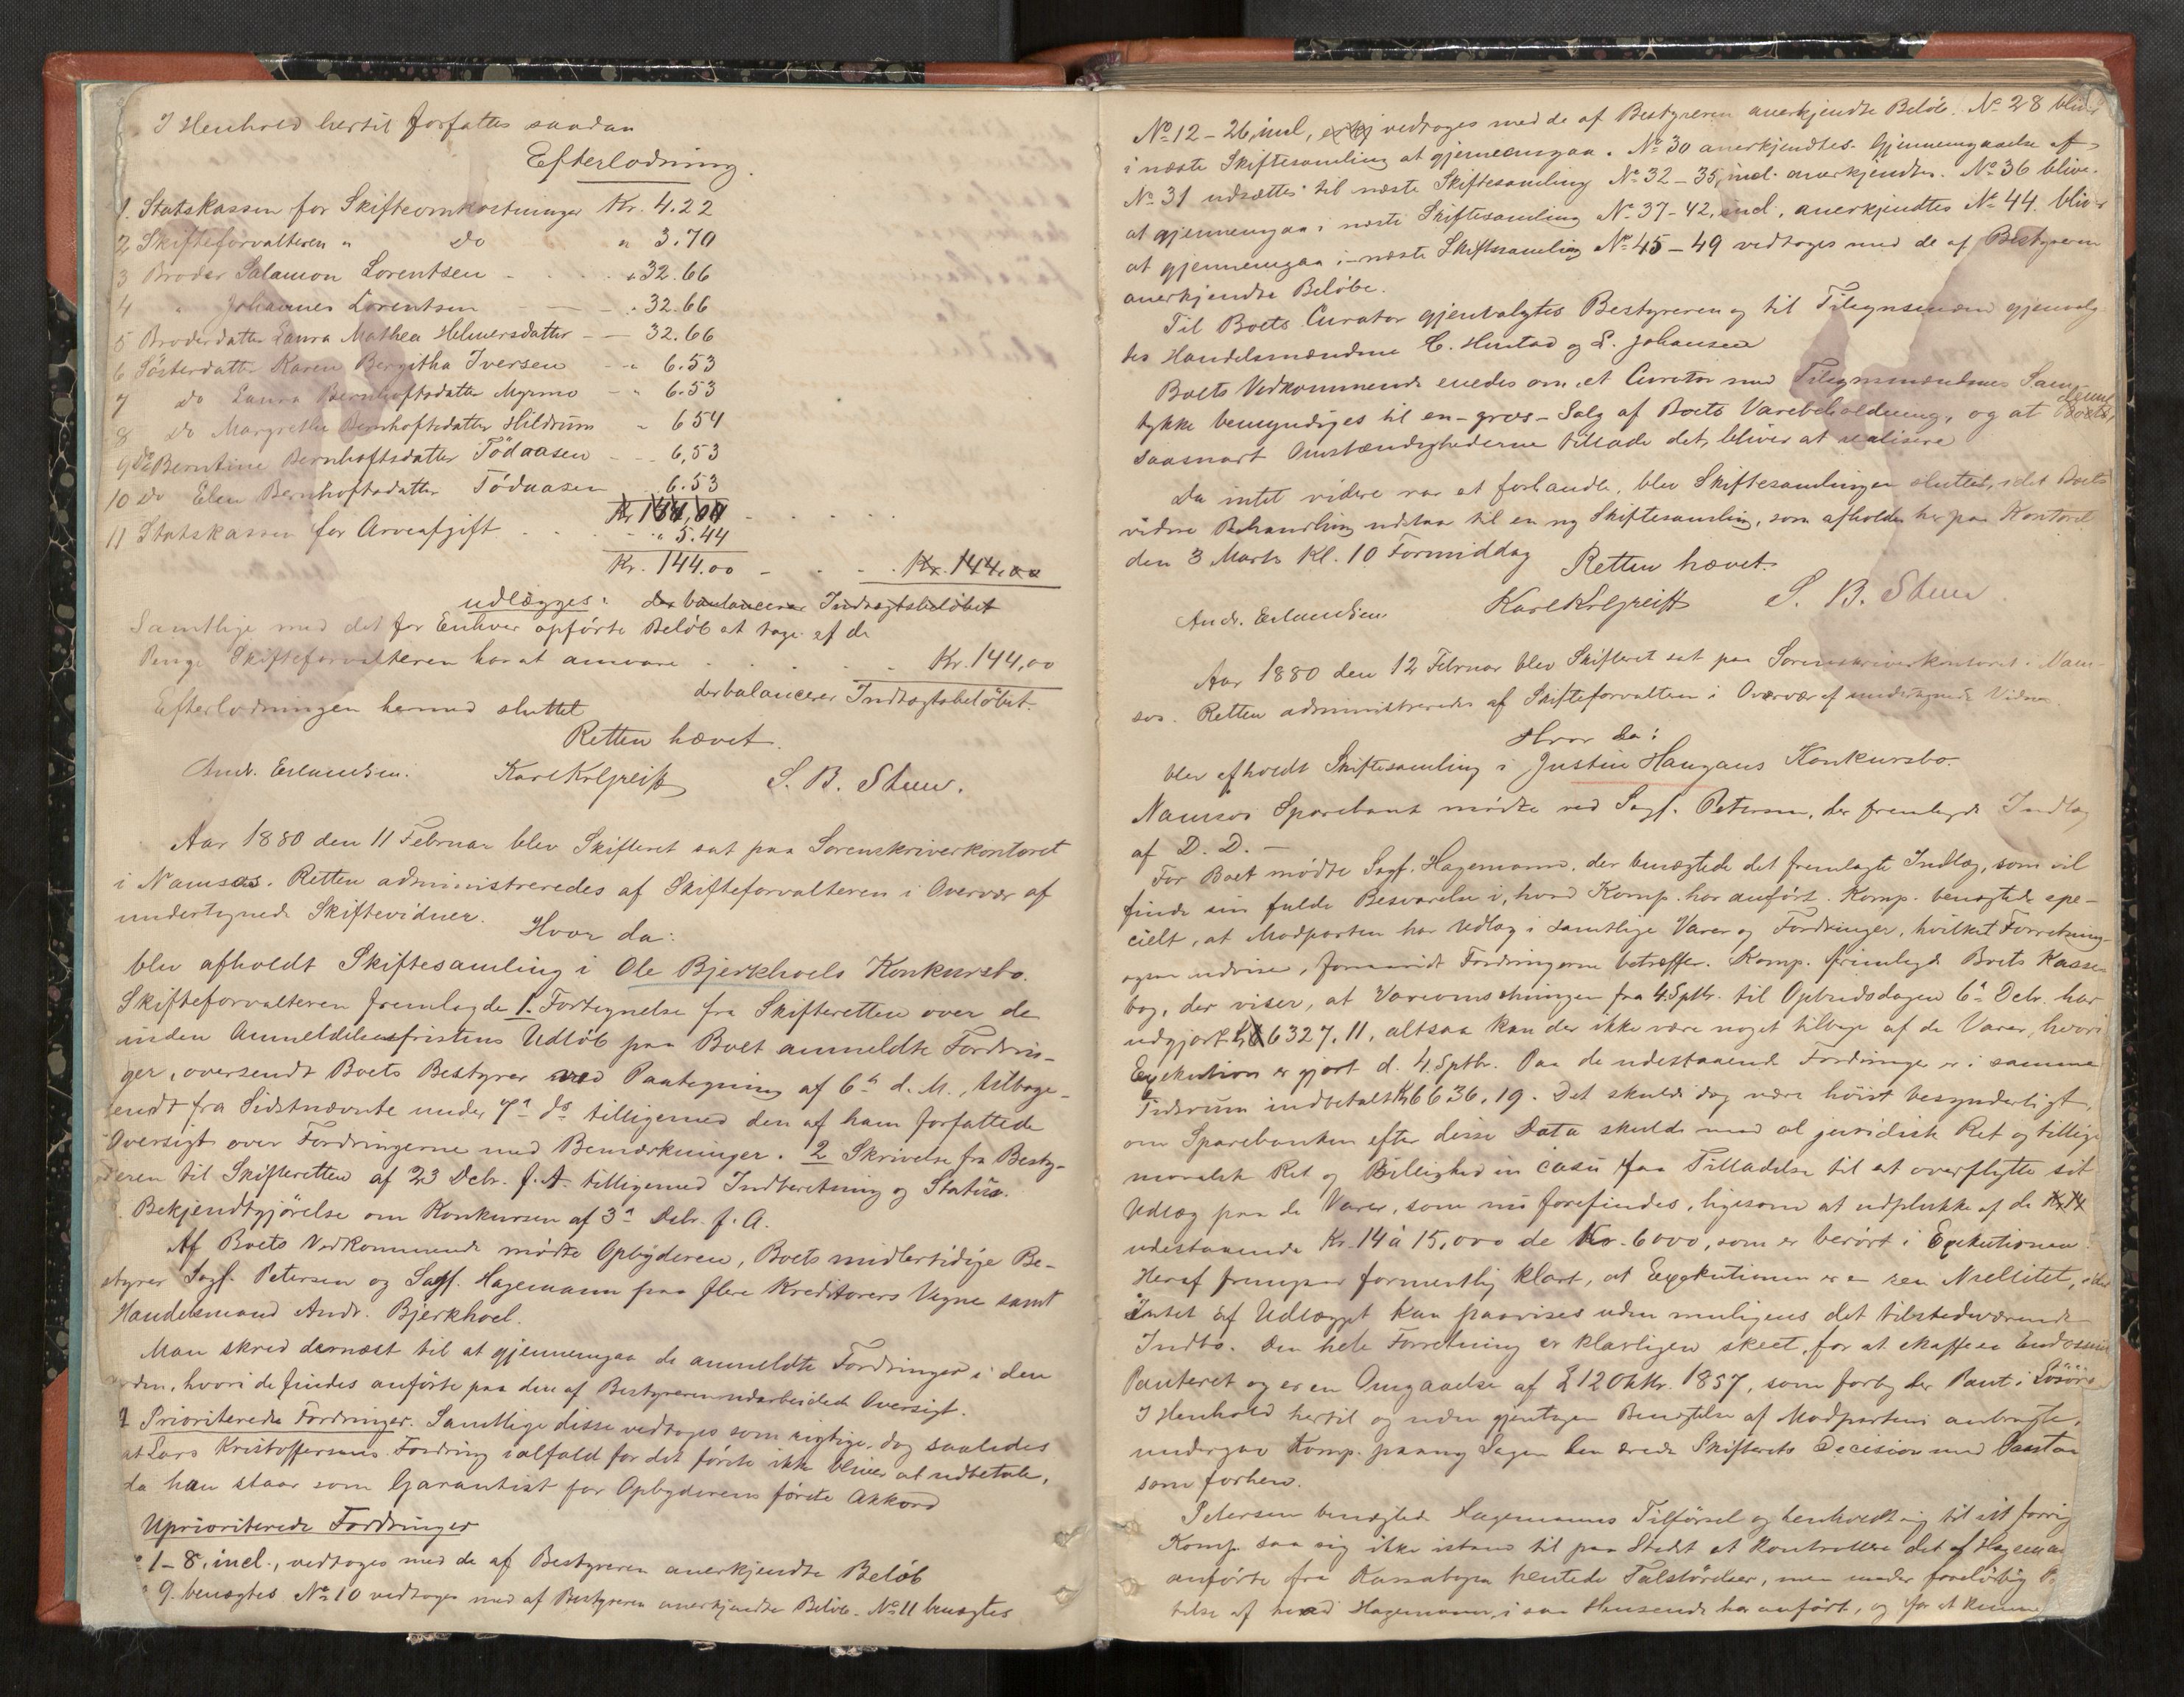 I Henhold hertil forfattes saadan
Efterlodning.
1. Statskassen for Skifteomkostninger Kr. 4.22
2 Skifteforvalteren " Do " 3.70
3 Broder Salamon Lorentsen - - " 32.66
4 " Johannes Lorentsen - - " 32.66
5 Broderdatter Laura Mathea Helmersdatter - - 32.66
6 Søsterdatter Karen Bergitha Iversen - " 6.53
7 Do Laura Bernhoftsdatter Myrmo - " 6.53
8 Do Margrethe Bernhoftsdatter Hildrum " 6 54
9 Do Berntine Bernhoftsdatter Födaasen - - 6,53
10 Do Elen Bernhoftsdatter Födaasen 6.53
11 Statskassen for Arveafgift " 5.44
Kr. 144.00 - - - Kr. 144.00
udlægges: der balancerer Indtægtsbeløbet
Samtlige med det for Enhver opførte Beløb at tage af de
Penge Skifteforvalteren har at ansvare - - Kr. 144,00
der balancerer Indtægtsbeløbet.
Efterlodningen hermed sluttet
Retten hævet.
Andr. Erlandsen. Karl Kr Greiff S. B. Steen.
Aar 1880 den 11 Februar blev Skifteret sat paa Sorenskriverkontoret
i Namsos. Retten administreredes af Skifteforvalteren i Overvær af
undertegnede Skiftevidner.
Hvor da:
blev afholdt Skiftesamling i Ole Bjerkhoels Konkursbo.
Skifteforvalteren fremlagde 1. Fortegnelse fra Skifteretten over de
inden Anmeldelsesfristens Udløb paa Boet anmeldte Fordrin-
ger, oversendt Boets Bestyrer ved Paategning af 6te d. M., tilbage-
sendt fra Sidstnævnte under 7de ds tilligemed den af ham forfattede
Oversigt over Fordringerne med Bemærkninger. 2 Skrivelse fra Besty-
reren til Skifteretten af 23 Decbr. f. A. tilligemed Indberetning og Status.
Bekjendtgjörelse om Konkursen af 3de Debr. f. A.
Af Boets Vedkommende mødte Opbyderen, Boets midlertidige Be-
styrer Sagf. Petersen og Sagf. Hagemann paa flere Kreditorers Vegne samt
Handelsmand Andr. Bjerkhoel.
Man skred dernæst til at gjennemgaa de anmeldte Fordringer i den
Orden, hvori de findes anførte paa den af Bestyreren udarbeidede Oversigt.
Prioriterede Fordringer. Samtlige disse vedtoges som rigtige, dog saaledes
at Lars Kristoffersens Fordring ialfald for det første ikke bliver at udbetale,
da han staar som Garantist for Opbyderens første Akkord
Uprioriterede Fordringer
1-8, incl., vedtoges med de af Bestyreren anerkjendte Beløb
9. benægtes No 10 vedtoges med af Bestyreren anerkjendte Beløb. No 11 benægtes
No 12-26, incl, vedtoges med de af Bestyreren anerkjendte Beløb. No 28 bliver
i næste Skiftesamling at gjennemgaa. No 30 anerkjendtes. Gjennemgaaelse af
No 31 udsættes til næste Skiftesamling No 32-35, incl. anerkjendtes. No 36 bliver
at gjennemgaa i næste Skiftesamling No 37-42, incl, anerkjendtes No 44. bliver
at gjennemgaa i næste Skiftesamling No 45-49 vedtoges med de af Bestyreren
anerkjendte Beløbe.
Til Boets Curator gjenvalgtes Bestyreren og til Tilsynsmænd gjenvalg-
tes Handelsmændene C. Hustad og L. Johansen
Boets Vedkommende enedes om, at Curator med Tilsynsmændenes Sam-
tykke bemyndiges til en-gros-Salg af Boets Varebeholdning, og at denne,
saasnart Omstændighederne tillade det, bliver at realisere
Da intet videre var at forhandle, blev Skiftesamlingen sluttet, idet Boets
videre Behandling udstaar til en ny Skiftesamling, som afholdes her paa Kontoret
den 3 Marts Kl. 10 Formiddag Retten hævet.
Andr. Erlandsen. Karl Kr Greiff S. B. Steen
Aar 1880 den 12 Februar blev Skifteret sat paa Sorenskriverkontoret i Nam-
sos. Retten administreredes af Skifteforvalteren i Overvær af undertegnede Vidner
Hvor da:
blev afholdt Skiftesamling i Justin Haugans Konkursbo.
Namsos Sparebank mødte ved Sagf. Petersen, der fremlagde Indlæg
af D. D. -
For Boet mødte Sagf. Hagemann, der benægtede det fremlagte Indlæg, som vil
finde sin fulde Besvarelse i, hvad Komp. har anført. Komp. benægtede spe-
cielt, at Modparten har Udlæg i samtlige Varer og Fordringer, hvilket Forretning-
en udviser, forsaavidt Fordringerne betræffer. Komp. fremlagde Boets Kasse-
bog, der viser, at Vareomsætningen fra 4 Sptbr. til Opbudsdagen 6te Debr. har
udgjort Kr 6327,11, altsaa kan der ikke være noget tilbage af de Varer, hvori
Exekution er gjort d. 4 Sptbr. Paa de udestaaende Fordringer er i samme
Tidsrum indbetalt Kr 6636,19. Det skulde dog være høist besynderligt,
om Sparebanken efter disse Data skulde med al juridisk Ret og tillige
moralsk Ret og Billighed in casu faa Tilladelse til at overflytte sit
Udlæg paa de Varer, som nu forefindes, ligesom at udplukke af de
udestaaende Kr. 14 à 15,000 de Kr. 6000, som er berørt i Exekutionen.
Heraf fremgaar formentlig klart, at Exekutionen er en ren Nullitet, idet
Intet af Udlægget kan paavises uden muligens det tilstedeværende
Indbo. Den hele Forretning er klarligen skeet, for at skaffe en
Panteret og er en Omgaaelse af § 12 Oktbr. 1857, som forbyder Pant i Løsøre
I Henhold hertil og under gjentagen Benægtelse af Modpartens anbragte,
undergav Komp. paany Sagen den ærede Skifterets Decision med Paastand
som forhen.
Petersen benægtede Hagemanns Tilførsel og henholdt sig til sit forrige
Komp. saa sig ikke istand til paa Stedet at kontrollere det af Hagemann
anførte fra Kassabogen hentede Talstørrelser, men under foreløbig
telse af hvad Hagemann i saa Henseende har anført, og for at kunne